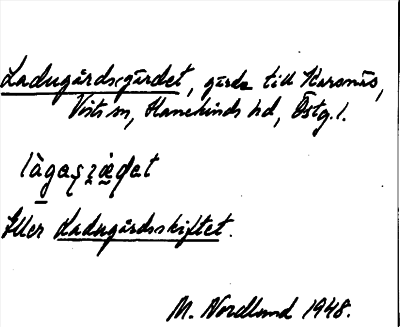 Ladugårdsgärdet, gärde till Karsnäs,
Vists sn, Hanekinds hd, Östg. l.
Eller Ladugårdsskiftet.
M. Nordlund 1948.